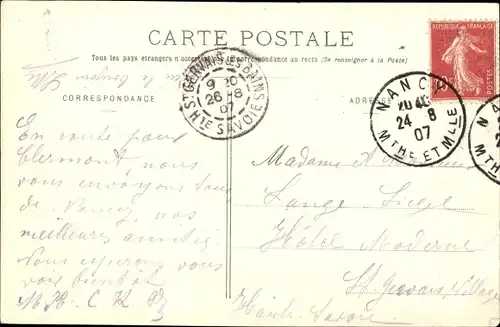 CARTE POSTALE
Tous les pays étrangers n'acceptent pas la correspondance au recto (Se renseigner à la Poste)
RÉPUBLIQUE FRANÇAISE
POSTES
CORRESPONDANCE
ADRESSE
ST GERVAIS LES BAINS
9 20
26 - 8
07
HTE SAVOIE
NANCY
24 - 8
07
MTHE ET MLLE
En route pour
Clermont, nous
vous envoyons tous
de Nancy, nos
meilleures amitiés
Vous espérons vous
voir bientôt
Madame
Lange Siegel
Hôtel Moderne
St Gervais Village
Haute Savoie